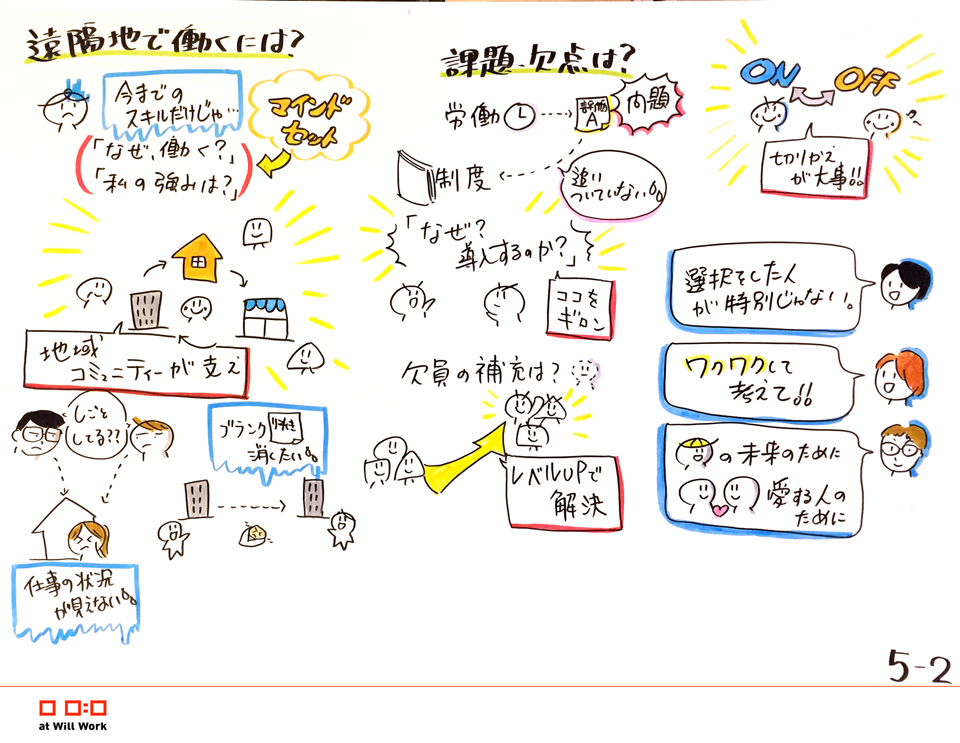 遠隔地で働くには?
今までの
スキルだけじゃ…
マインド
セット
「なぜ、働く?」
「私の強みは?」
地域
コミュニティーが支え
しごと
してる??
ブランク
消したい。
仕事の状況
が見えない。
課題・欠点は?
労働
評価
A
内題
制度
追い
ついていない。
「なぜ?
導入するのか?」
ココを
ギロン
欠員の補充は?
レベルUPで
解決
ON
OFF
切りかえ
が大事!!
選択をした人
が特別じゃない。
ワクワクして
考えて!!
の未来のために
愛する人の
ために
5-2
at Will Work